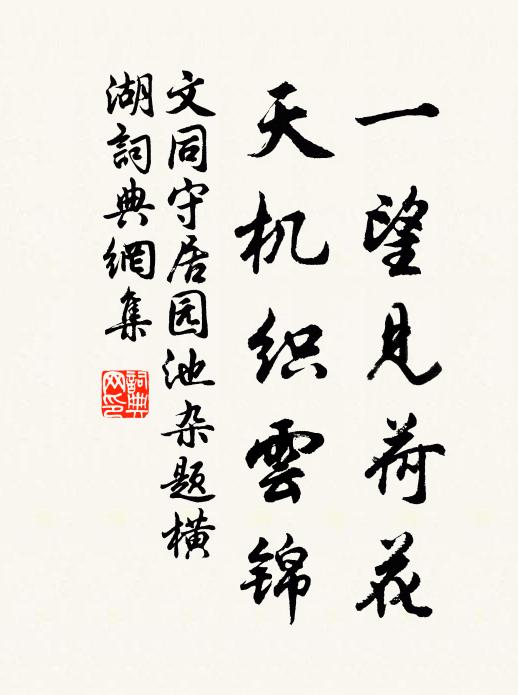 一望見荷花
天机织雲锦
文同守居园池杂题横
湖詞典網集
詞典网印